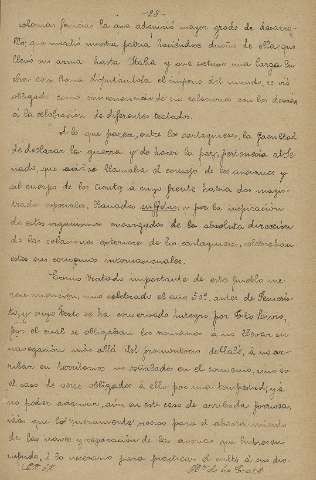 - 28 -
colonias fenicias la que adquirió mayor grado de desarro-
llo, que invadió nuestra patria haciéndose dueña de ella, que
llevó sus armas hasta Italia y que sostuvo una larga lu-
cha con Roma disputándola el imperio del mundo, se vió
obligada como consecuencia de sus relaciones con los demás
á la celebración de diferentes tratados.
A lo que parece, entre los cartagineses, la facultad
de declarar la guerra y de hacer la paz, pertenecía al Se-
nado, que allí se llamaba el consejo de los ancianos y
al cuerpo de los Ciento, á cuyo frente había dos magis-
trados especiales, llamados suffetas, y por la
de estos organismos encargados de la absoluta dirección
de las relaciones exteriores de los cartagineses, celebraban
estos sus convenios internacionales.
Como tratado importante de este pueblo me-
rece mención, uno celebrado el año 509 antes de Jesucris-
to, y cuyo texto se ha conservado íntegro por
por el cual se obligaban los romanos á no llevar su
navegación más allá del promontorio á no arri-
bar en territorios no señalados en el convenio, uno es
el caso de verse obligados á ello por una tempestad, y á
no poder adquirir, aún en este caso de arribada forzosa,
más que lo puramente necesario para el abastecimiento
de las naves y reparación de las averías que hubieran
sufrido, ó lo necesario para practicar el culto á sus dio-